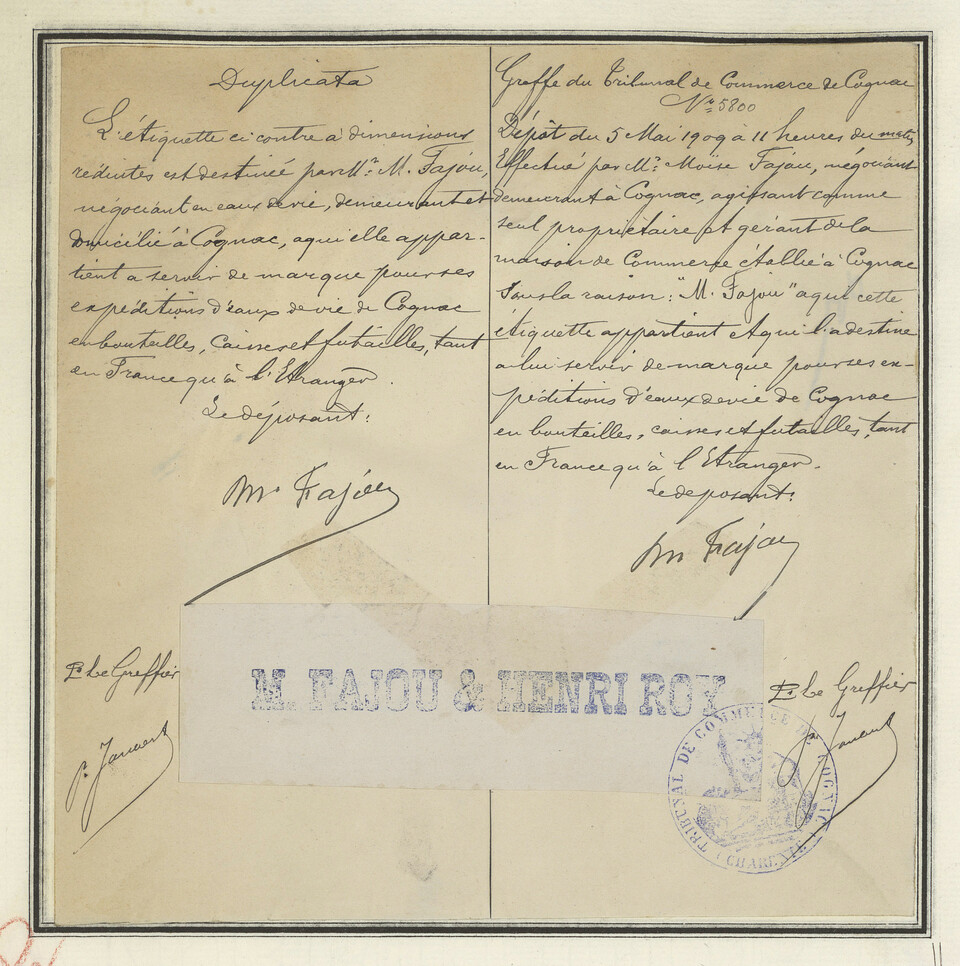 Duplicata
L'étiquette ci contre à dimensions
réduites est destinée par Mr. M. Fajou,
négociant en eaux de vie, demeurant et
domicilié à Cognac, a qui elle appar-
tient a servir de marque pour ses
expéditions d'eaux de vie de Cognac
en bouteilles, caisses et futailles, tant
en France qu'à l'Etranger.
Le déposant:
M. Fajou
P Le Greffier
Greffe du Tribunal de Commerce de Cognac
No 5800
Dépôt du 5 Mai 1909 à 11 heures du matin
Effectué par Mr. Moïse Fajou, négociant
demeurant à Cognac, agissant comme
seul propriétaire et gérant de la
maison de Commerce établie à Cognac
sous la raison: "M. Fajou" a qui cette
étiquette appartient et qui l'a destine
a lui servir de marque pour ses ex-
péditions d'eaux de vie de Cognac
en bouteilles, caisses et futailles, tant
en France qu'à l'Etranger.
Le deposant:
M Fajou
P Le Greffier
M. FAJOU & HENRI ROY
TRIBUNAL DE COMMERCE DE COGNAC
(CHARENTE)